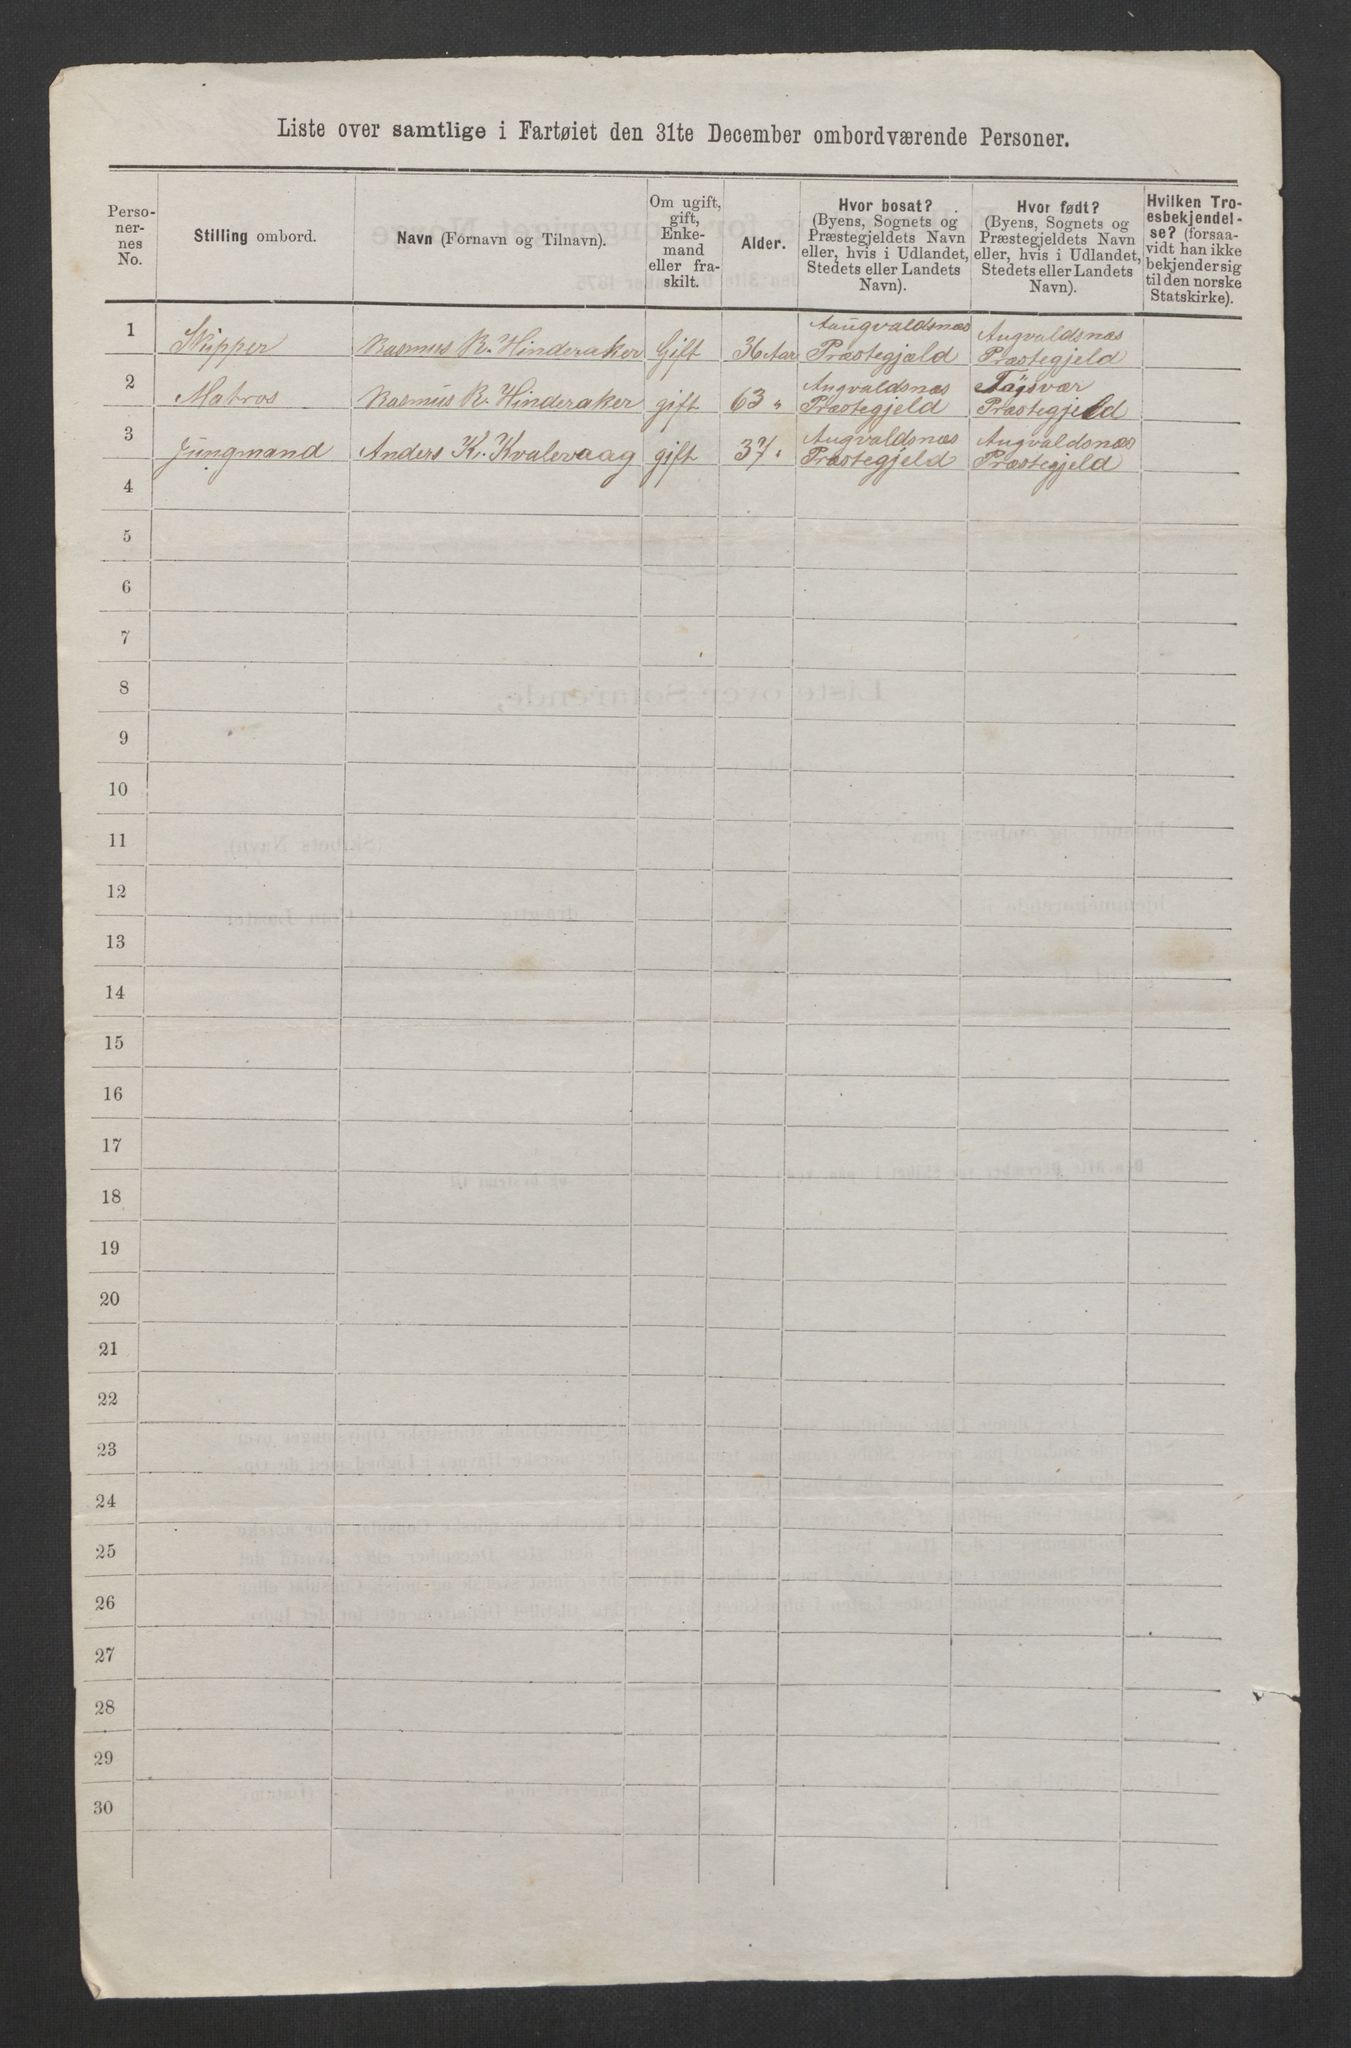 Liste over samtlige i Fartøiet den 31te December ombordværende Personer.
Perso-
ner-
nes
No.
Stilling ombord.
Navn (Fornavn og Tilnavn).
Om ugift,
gift,
Enke-
mand
eller fra-
skilt.
Alder.
Hvor bosat?
(Byens, Sognets og
Præstegjeldets Navn
eller, hvis i Udlandet,
Stedets eller Landets
Navn).
Hvor født?
(Byens, Sognets og
Præstegjeldets Navn
eller, hvis i Udlandet,
Stedets eller Landets
Navn).
Hvilken Tro-
esbekjendel-
se? (forsaa-
vidt han ikke
bekjender sig
til den norske
Statskirke).
1 Skipper Rasmus R. Hinderaker Gift 36 Aar Aaugvaldsnæs Præstegjæld Augvaldsnæs Præstegjeld
2 Matros Rasmus R. Hinderaker gift 63 " Augvaldsnæs Præstegjeld Tysvær Præstegjeld
3 Jungmand Anders K. Kvalevaag gift 37 " Augvaldsnæs Præstegjeld Augvaldsnæs Præstegjeld
4
5
6
7
8
9
10
11
12
13
14
15
16
17
18
19
20
21
22
23
24
25
26
27
28
29
30